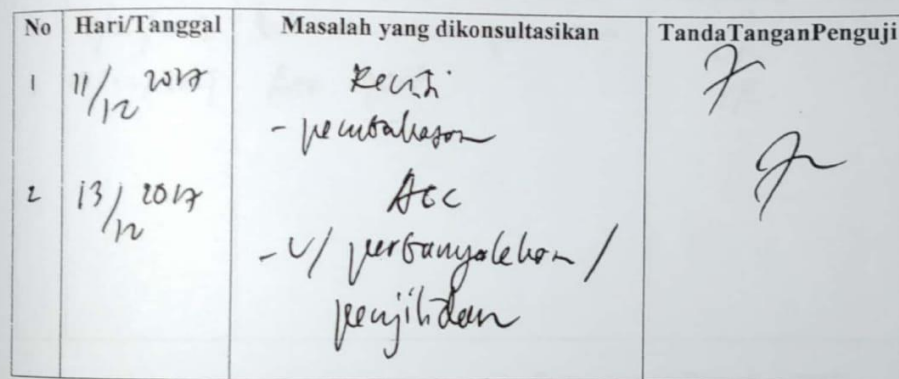 No Hari/Tanggal Masalah yang dikonsultasikan TandaTanganPenguji
1 11/12 2017 Revisi
- pembahasan
2 13/12 2017 Acc
- u/ perbanyakan /
penjilidan